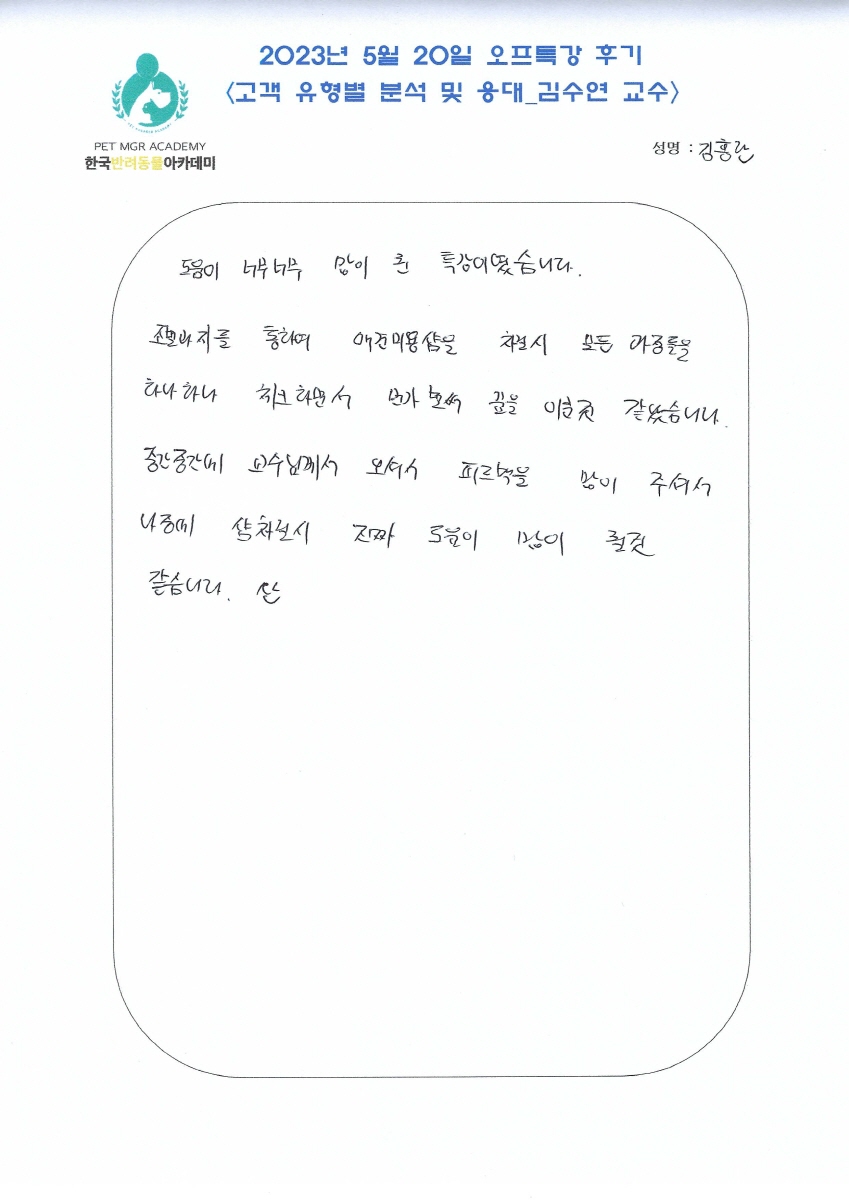 2023년 5월 20일 오프특강 후기
<고객 유형별 분석 및 응대_김수연 교수>
PET MGR ACADEMY
한국반려동물아카데미
성명 : 김홍란
도움이 너무너무 많이 된 특강이였습니다.
조별과제를 통하여 애견미용샵을 차릴시 모든 과정들을
하나하나 체크하면서 뭔가 벌써 꿈을 이룬것 같았습니다.
중간중간에 교수님께서 오셔서 피드백을 많이 주셔서
나중에 샵차릴시 진짜 도움이 많이 될것
같습니다.